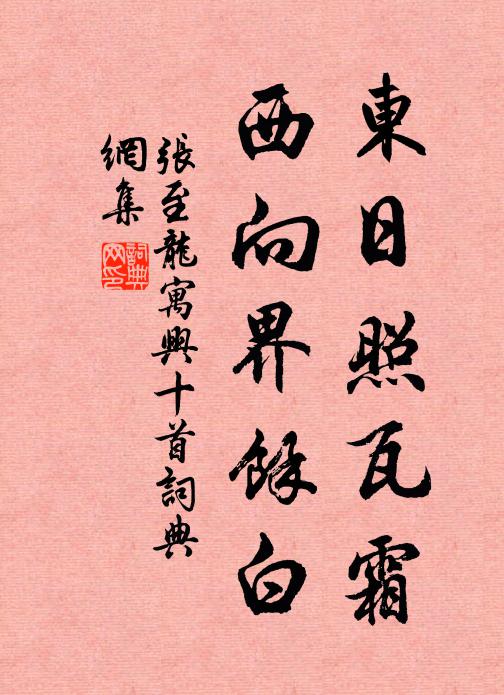 東日照瓦霜
西向界餘白
張至龍寓興十首詞典
網集
詞典
网印